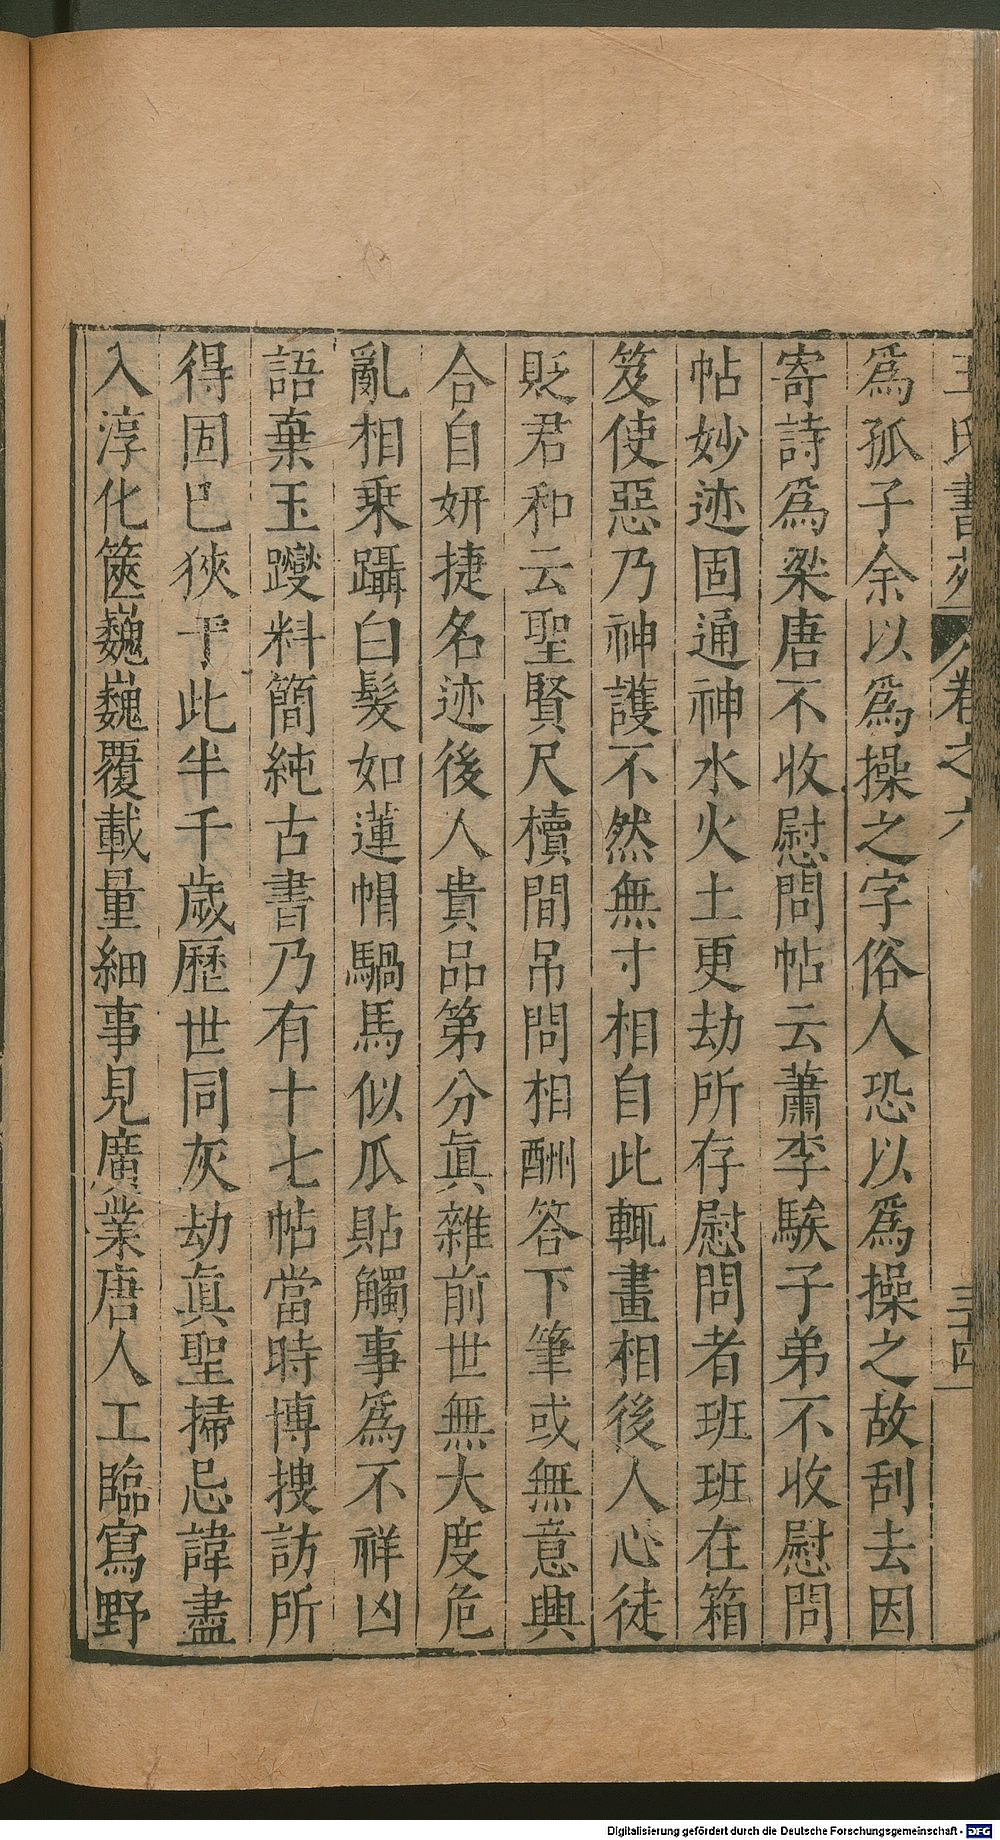 王氏書苑 卷之六 三十四
爲孤子余以爲操之字俗人恐以爲操之故刮去因
寄詩爲梁唐不收慰問帖云蕭李騃子弟不收慰問
帖妙迹固通神水火土更劫所存慰問者班班在箱
笈使惡乃神護不然無寸相自此輒畫相後人心徒
貶君和云聖賢尺牘間吊問相酬答下筆或無意興
合自妍捷名迹後人貴品第分眞雜前世無大度危
亂相乗躡白髮如蓮帽騧馬似瓜貼觸事爲不祥凶
語棄玉躞料簡純古書乃有十七帖當時博搜訪所
得固已狹于此半千歲歷世同灰劫眞聖掃忌諱盡
入淳化篋巍巍覆載量細事見廣業唐人工臨寫野
Digitalisierung gefördert durch die Deutsche Forschungsgemeinschaft - DFG